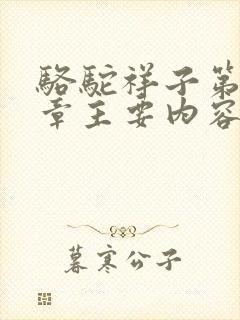 骆驼祥子第
章主要内容
暮寒公子